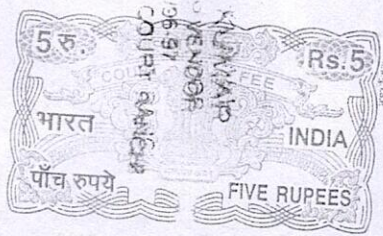 5 रु
Rs.5
COURT FEE
भारत
INDIA
पाँच रुपये
FIVE RUPEES
VENDOR
96-97
COURT